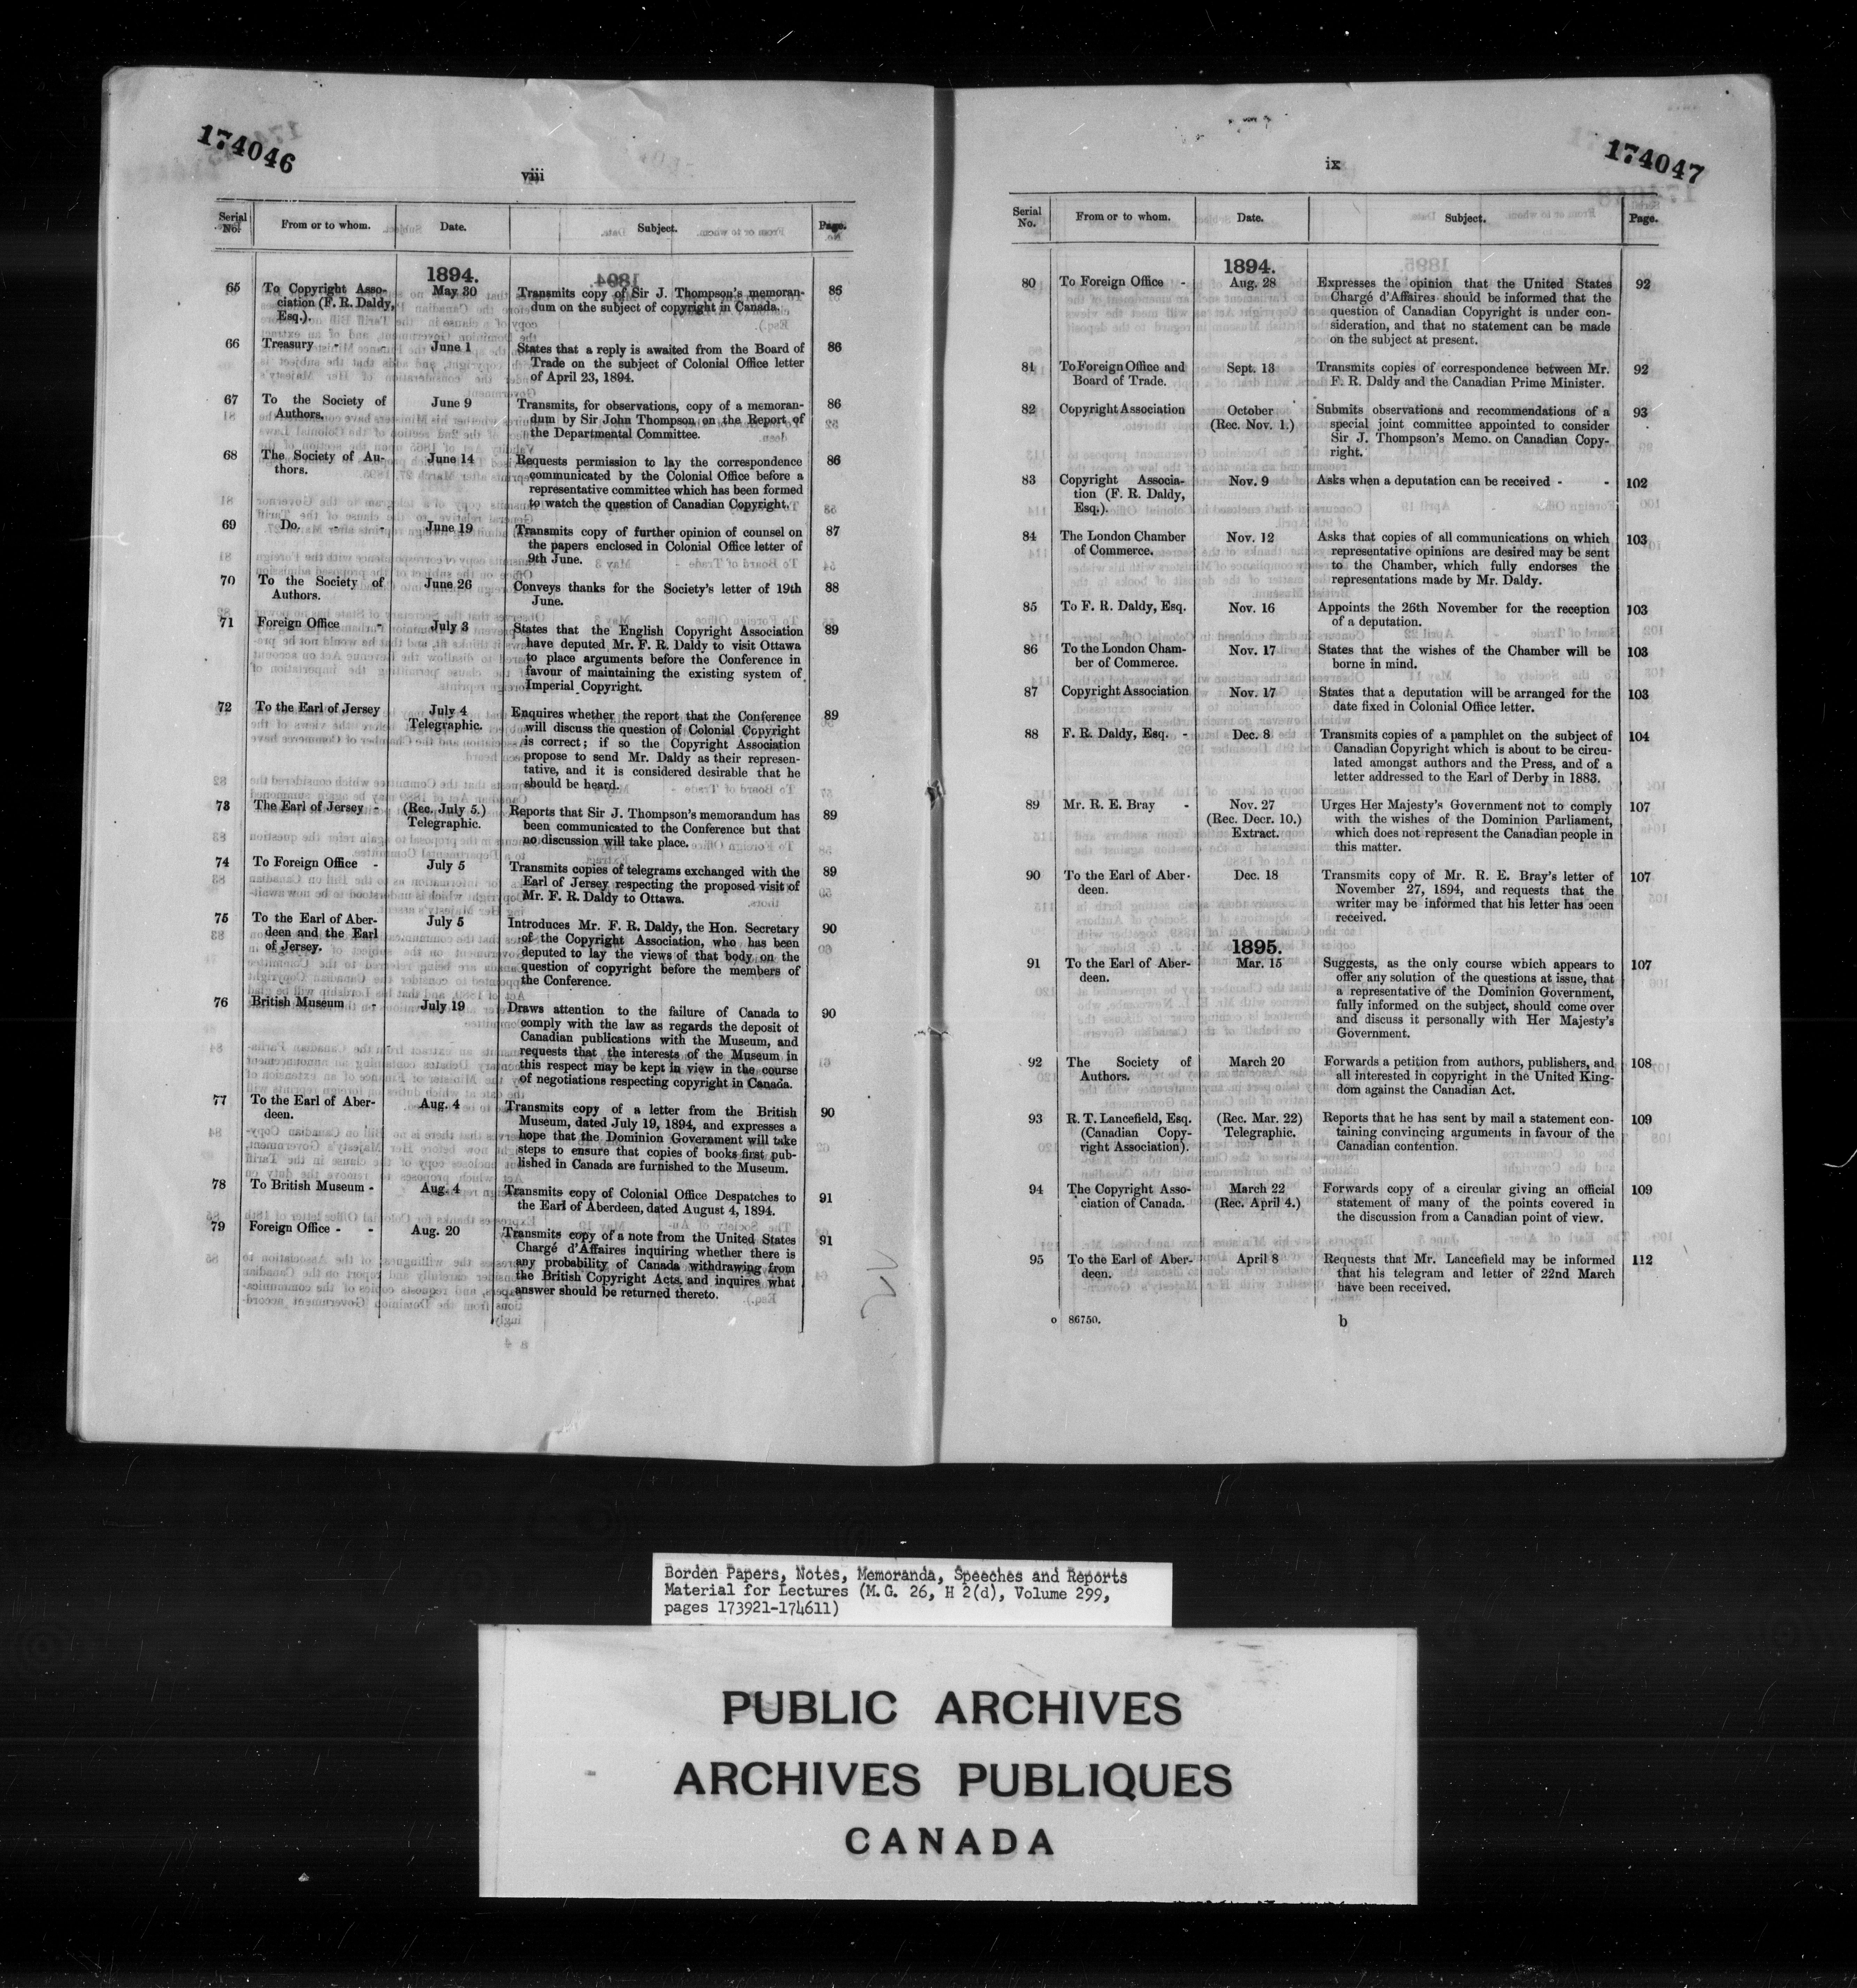 174046
viii
Serial No. From or to whom. Date. Subject. Page.
1894.
65 To Copyright Asso- May 30 Transmits copy of Sir J. Thompson's memoran- 86
ciation (F. R. Daldy, dum on the subject of copyright in Canada.
Esq.).
66 Treasury - - June 1 States that a reply is awaited from the Board of 86
Trade on the subject of Colonial Office letter
of April 23, 1894.
67 To the Society of June 9 Transmits, for observations, copy of a memoran- 86
Authors. dum by Sir John Thompson on the Report of
the Departmental Committee.
68 The Society of Au- June 14 Requests permission to lay the correspondence 86
thors. communicated by the Colonial Office before a
representative committee which has been formed
to watch the question of Canadian Copyright.
69 Do. - - June 19 Transmits copy of further opinion of counsel on 87
the papers enclosed in Colonial Office letter of
9th June.
70 To the Society of June 26 Conveys thanks for the Society's letter of 19th 88
Authors. June.
71 Foreign Office - July 3 States that the English Copyright Association 89
have deputed Mr. F. R. Daldy to visit Ottawa
to place arguments before the Conference in
favour of maintaining the existing system of
Imperial Copyright.
72 To the Earl of Jersey July 4 Enquires whether the report that the Conference 89
Telegraphic. will discuss the question of Colonial Copyright
is correct; if so the Copyright Association
propose to send Mr. Daldy as their represen-
tative, and it is considered desirable that he
should be heard.
73 The Earl of Jersey - (Rec. July 5.) Reports that Sir J. Thompson's memorandum has 89
Telegraphic. been communicated to the Conference but that
no discussion will take place.
74 To Foreign Office - July 5 Transmits copies of telegrams exchanged with the 89
Earl of Jersey respecting the proposed visit of
Mr. F. R. Daldy to Ottawa.
75 To the Earl of Aber- July 5 Introduces Mr. F. R. Daldy, the Hon. Secretary 90
deen and the Earl of the Copyright Association, who has been
of Jersey. deputed to lay the views of that body on the
question of copyright before the members of
the Conference.
76 British Museum - July 19 Draws attention to the failure of Canada to 90
comply with the law as regards the deposit of
Canadian publications with the Museum, and
requests that the interests of the Museum in
this respect may be kept in view in the course
of negotiations respecting copyright in Canada.
77 To the Earl of Aber- Aug. 4 Transmits copy of a letter from the British 90
deen. Museum, dated July 19, 1894, and expresses a
hope that the Dominion Government will take
steps to ensure that copies of books first pub-
lished in Canada are furnished to the Museum.
78 To British Museum - Aug. 4 Transmits copy of Colonial Office Despatches to 91
the Earl of Aberdeen, dated August 4, 1894.
79 Foreign Office - - Aug. 20 Transmits copy of a note from the United States 91
Chargé d'Affaires inquiring whether there is
any probability of Canada withdrawing from
the British Copyright Acts, and inquires what
answer should be returned thereto.
174047
ix
Serial No. From or to whom. Date. Subject. Page.
1894.
80 To Foreign Office - Aug. 28 Expresses the opinion that the United States 92
Chargé d'Affaires should be informed that the
question of Canadian Copyright is under con-
sideration, and that no statement can be made
on the subject at present.
81 To Foreign Office and Sept. 13 Transmits copies of correspondence between Mr. 92
Board of Trade. F. R. Daldy and the Canadian Prime Minister.
82 Copyright Association October Submits observations and recommendations of a 93
(Rec. Nov. 1.) special joint committee appointed to consider
Sir J. Thompson's Memo. on Canadian Copy-
right.
83 Copyright Associa- Nov. 9 Asks when a deputation can be received - - 102
tion (F. R. Daldy,
Esq.).
84 The London Chamber Nov. 12 Asks that copies of all communications on which 103
of Commerce. representative opinions are desired may be sent
to the Chamber, which fully endorses the
representations made by Mr. Daldy.
85 To F. R. Daldy, Esq. Nov. 16 Appoints the 26th November for the reception 103
of a deputation.
86 To the London Cham- Nov. 17 States that the wishes of the Chamber will be 103
ber of Commerce. borne in mind.
87 Copyright Association Nov. 17 States that a deputation will be arranged for the 103
date fixed in Colonial Office letter.
88 F. R. Daldy, Esq. - Dec. 8 Transmits copies of a pamphlet on the subject of 104
Canadian Copyright which is about to be circu-
lated amongst authors and the Press, and of a
letter addressed to the Earl of Derby in 1883.
89 Mr. R. E. Bray - Nov. 27 Urges Her Majesty's Government not to comply 107
(Rec. Decr. 10.) with the wishes of the Dominion Parliament,
Extract. which does not represent the Canadian people in
this matter.
90 To the Earl of Aber- Dec. 18 Transmits copy of Mr. R. E. Bray's letter of 107
deen. November 27, 1894, and requests that the
writer may be informed that his letter has been
received.
1895.
91 To the Earl of Aber- Mar. 15 Suggests, as the only course which appears to 107
deen. offer any solution of the questions at issue, that
a representative of the Dominion Government,
fully informed on the subject, should come over
and discuss it personally with Her Majesty's
Government.
92 The Society of March 20 Forwards a petition from authors, publishers, and 108
Authors. all interested in copyright in the United King-
dom against the Canadian Act.
93 R. T. Lancefield, Esq. (Rec. Mar. 22) Reports that he has sent by mail a statement con- 109
(Canadian Copy- Telegraphic. taining convincing arguments in favour of the
right Association). Canadian contention.
94 The Copyright Asso- March 22 Forwards copy of a circular giving an official 109
ciation of Canada. (Rec. April 4.) statement of many of the points covered in
the discussion from a Canadian point of view.
95 To the Earl of Aber- April 8 Requests that Mr. Lancefield may be informed 112
deen. that his telegram and letter of 22nd March
have been received.
o 86750. b
Borden Papers, Notes, Memoranda, Speeches and Reports
Material for Lectures (M.G. 26, H 2(d), Volume 299,
pages 173921-174611)
PUBLIC ARCHIVES
ARCHIVES PUBLIQUES
CANADA